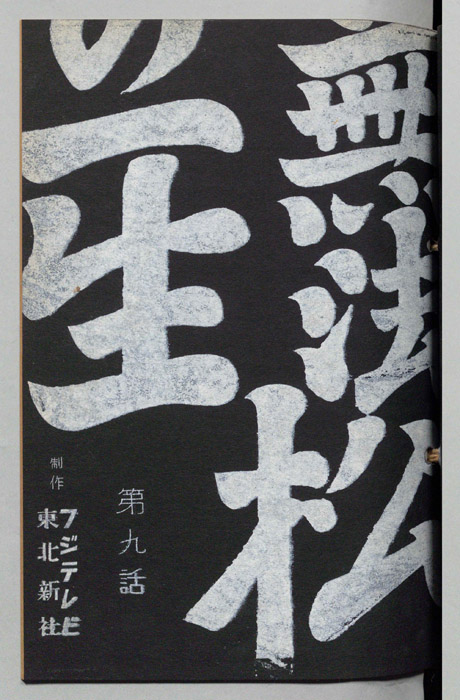 無法松
の一生
第九話
制作
フジテレビ
東北新社